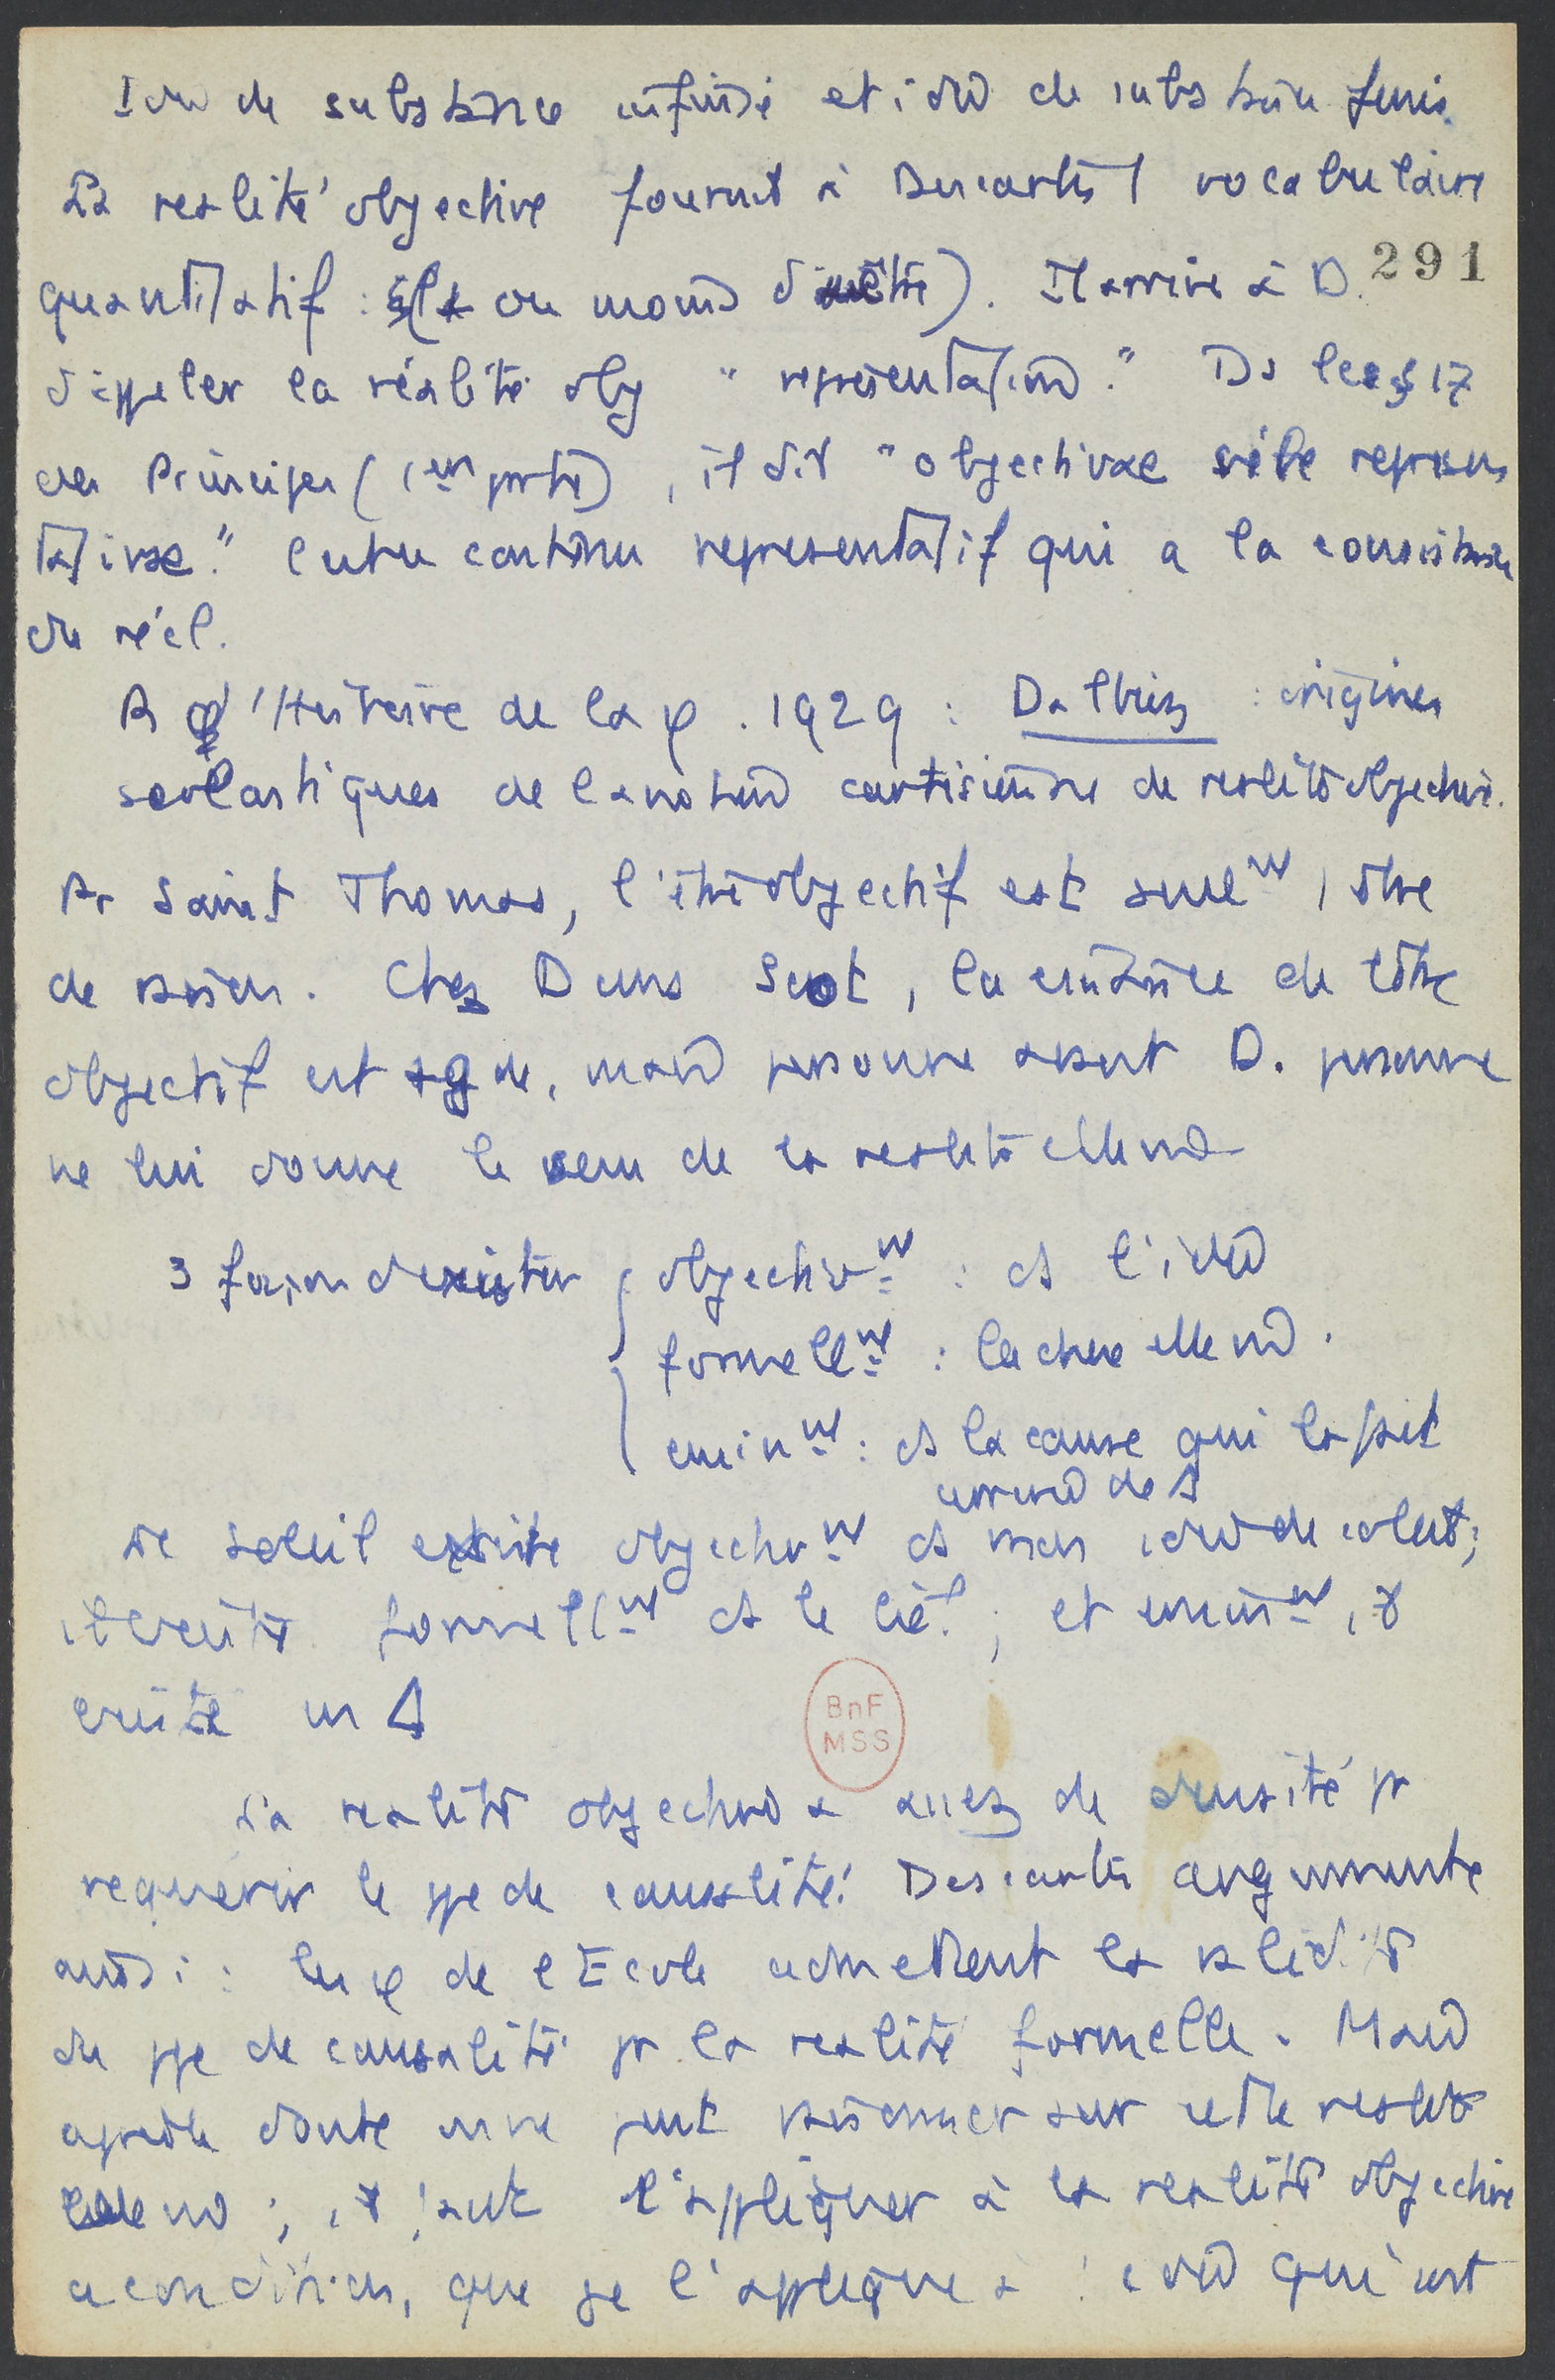 Idée de substance infinie et idée de substance finie.
La realité objective fournit à Descartes 1 vocabulaire
quantitatif : (+ ou moins d'être). Il arrive à D. 291
d'appeler la réalité obj "representation." Ds le § 17
des Principes (1ère partie), il dit "objectivae sive represen
tativae." Cette contenu representatif qui a la consistance
du réel.
R d'Histoire de la φ. 1929 : Dalbiez : origines
scolastiques de la notion cartésienne de realité objective.
Pr Saint Thomas, l'être objectif est seult 1 être
de raison. Chez Duns Scot, la consistance de l'être
objectif est gde, mais personne avant D. personne
ne lui donne le sens de la realité elle mê
3 façons d'exister { objectivt : ds l'idée
formellt : la chose elle mê.
emint : ds la cause qui la fait
Le soleil existe objectivt ds mon idée de soleil;
il existe formellt ds le ciel ; et emint, il
existe en Δ
La realité objective a assez de densité pr
requerir le ppe de causalité. Descartes argumente
ainsi : les φ de l'Ecole admettent la validité
du ppe de causalité pr la realité formelle. Mais
après le doute on ne peut raisonner sur cette realité
elle mê ; il faut l'appliquer à la realité objective
a condition, que je l'applique à l'idée qui est
BnF
MSS